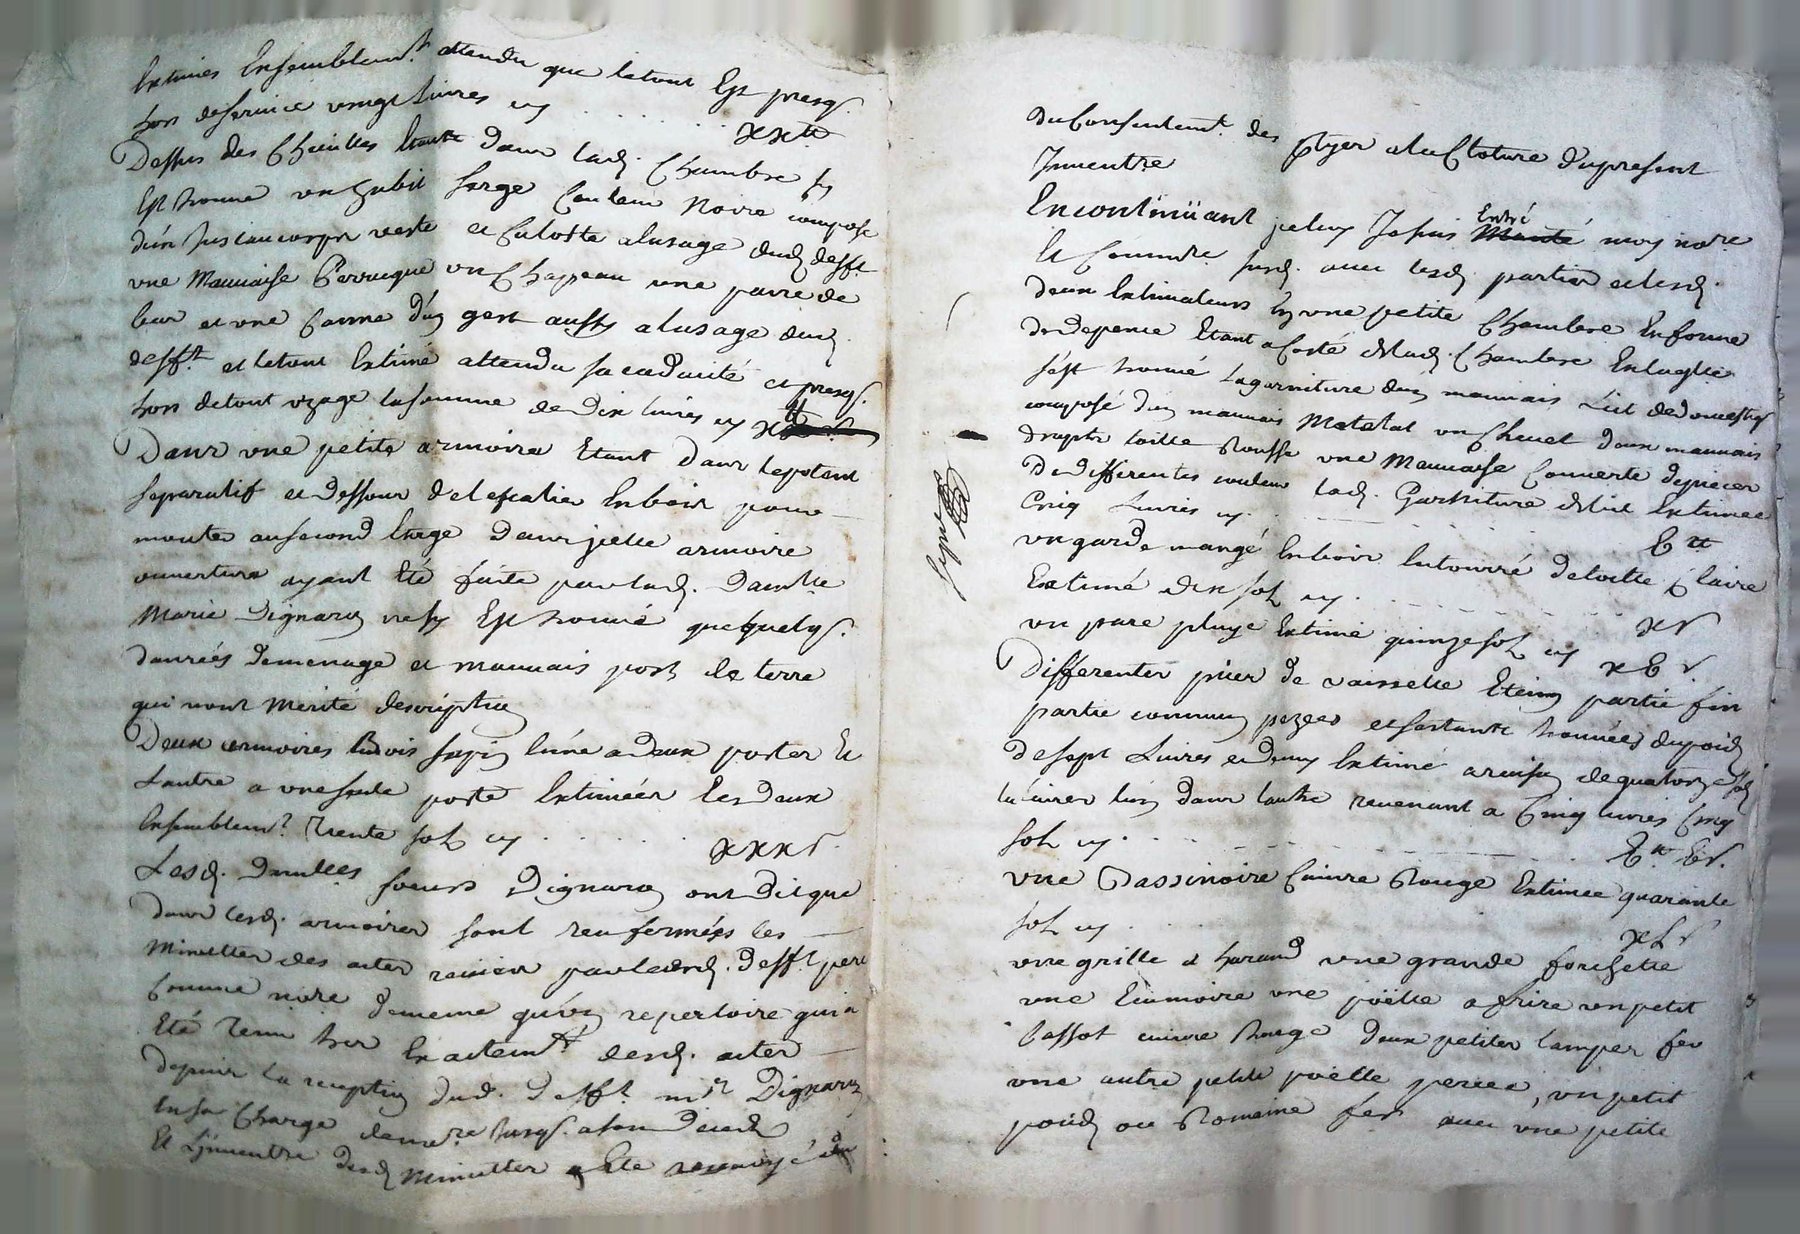 Estimés Ensemblem.t attendu que letout Est presq.
hors deservice vingt livres cy . . . . . . . xx ₶
Dessus des Cheuilles Etants dans lad. Chambre sy
Est trouué un habit serge Couleur Noire composé
d'un Justaucorps veste et Culotte alusage dud. deff.t
une Mauuaise Perruque un Chappeau une paire de
bas et une Canne d'un gest aussy alusage dud.
deff.t et letout Estimé attendu sa caducité et presq.
hors detout uzage lasomme de Dix liures cy x ₶
Dans une petite armoire Etant dans lepotant
separatif et dessous delescalier Enbois pour
monter ausecond Etage dans jcelle armoire
ouverture ayant Eté faite par lad. Damlle
Marie Dignaron nesy Est trouué que quelqs.
danrées demenage et mauuais pots de terre
qui nont Merité description
Deux armoires Enbois sapin lune adeux portes Et
Lautre a uneseule porte Estimées les deux
Ensemblem.t Trente sols cy . . . . . . xxx s
Lesd. Damlles soeurs Dignaron ont dit que
dans lesd. armoires sont renfermées les
Minuttes des actes receus parledud. deff.t pere
Comme no.re dememe qu'un repertoire quia
Eté Tenu tres Exactem.t desd. actes
depuis la reception dud. deff.t m.e Dignaron
ensa Charge deno.re jusqs. ason deceds
Et L'jnuentre desd. Minuttes a Eté renuoyé
du Consentem.t des Ptyes ala Cloture dupresent
Jnuentre
Encontinüant jceluy Jesuis Entré Monté moy no.re
Et Commre. susd. auec lesd. parties etlesd.
deux Estimateurs En une petite Chambre Enforme
de depence Etant aCosté delad. Chambre Enlaqlle.
s'est trouué lagarniture dun mauuais Lict dedomestiq.
composé d'un mauuais Matelat un Cheuet deux mauuais
draps toille Rousse une Mauuaise Couuerte depieces
de differentes couleurs lad. Garniture delit Estimee
Cinq Liures cy . . . . . . V ₶
un garde mangé Enbois Entourré detoille Claire
Estimé dix sols cy . . . . . . x s
un pare pluye Estimé quinzesols cy x V s
Differentes pieces de vaisselle Etein partie fin
partie commun pezées et sestants trouuées dupoid
desept Liures et demy Estimé araison dequatorze sols
la liure lun dans lautre reuenant a Cinq liures Cinq
sols cy . . . . . . V ₶ V s.
une Bassinoire Cuiure Rouge Estimee quarante
sols cy . . . . . . xL s
une grille a harand une grande forchette
une Ecumoire une poëlle afrire un petit
bassot cuiure Rouge deux petites lampes fer
une autre petite poëlle percée, un petit
poids ou Romaine fer auec une petite